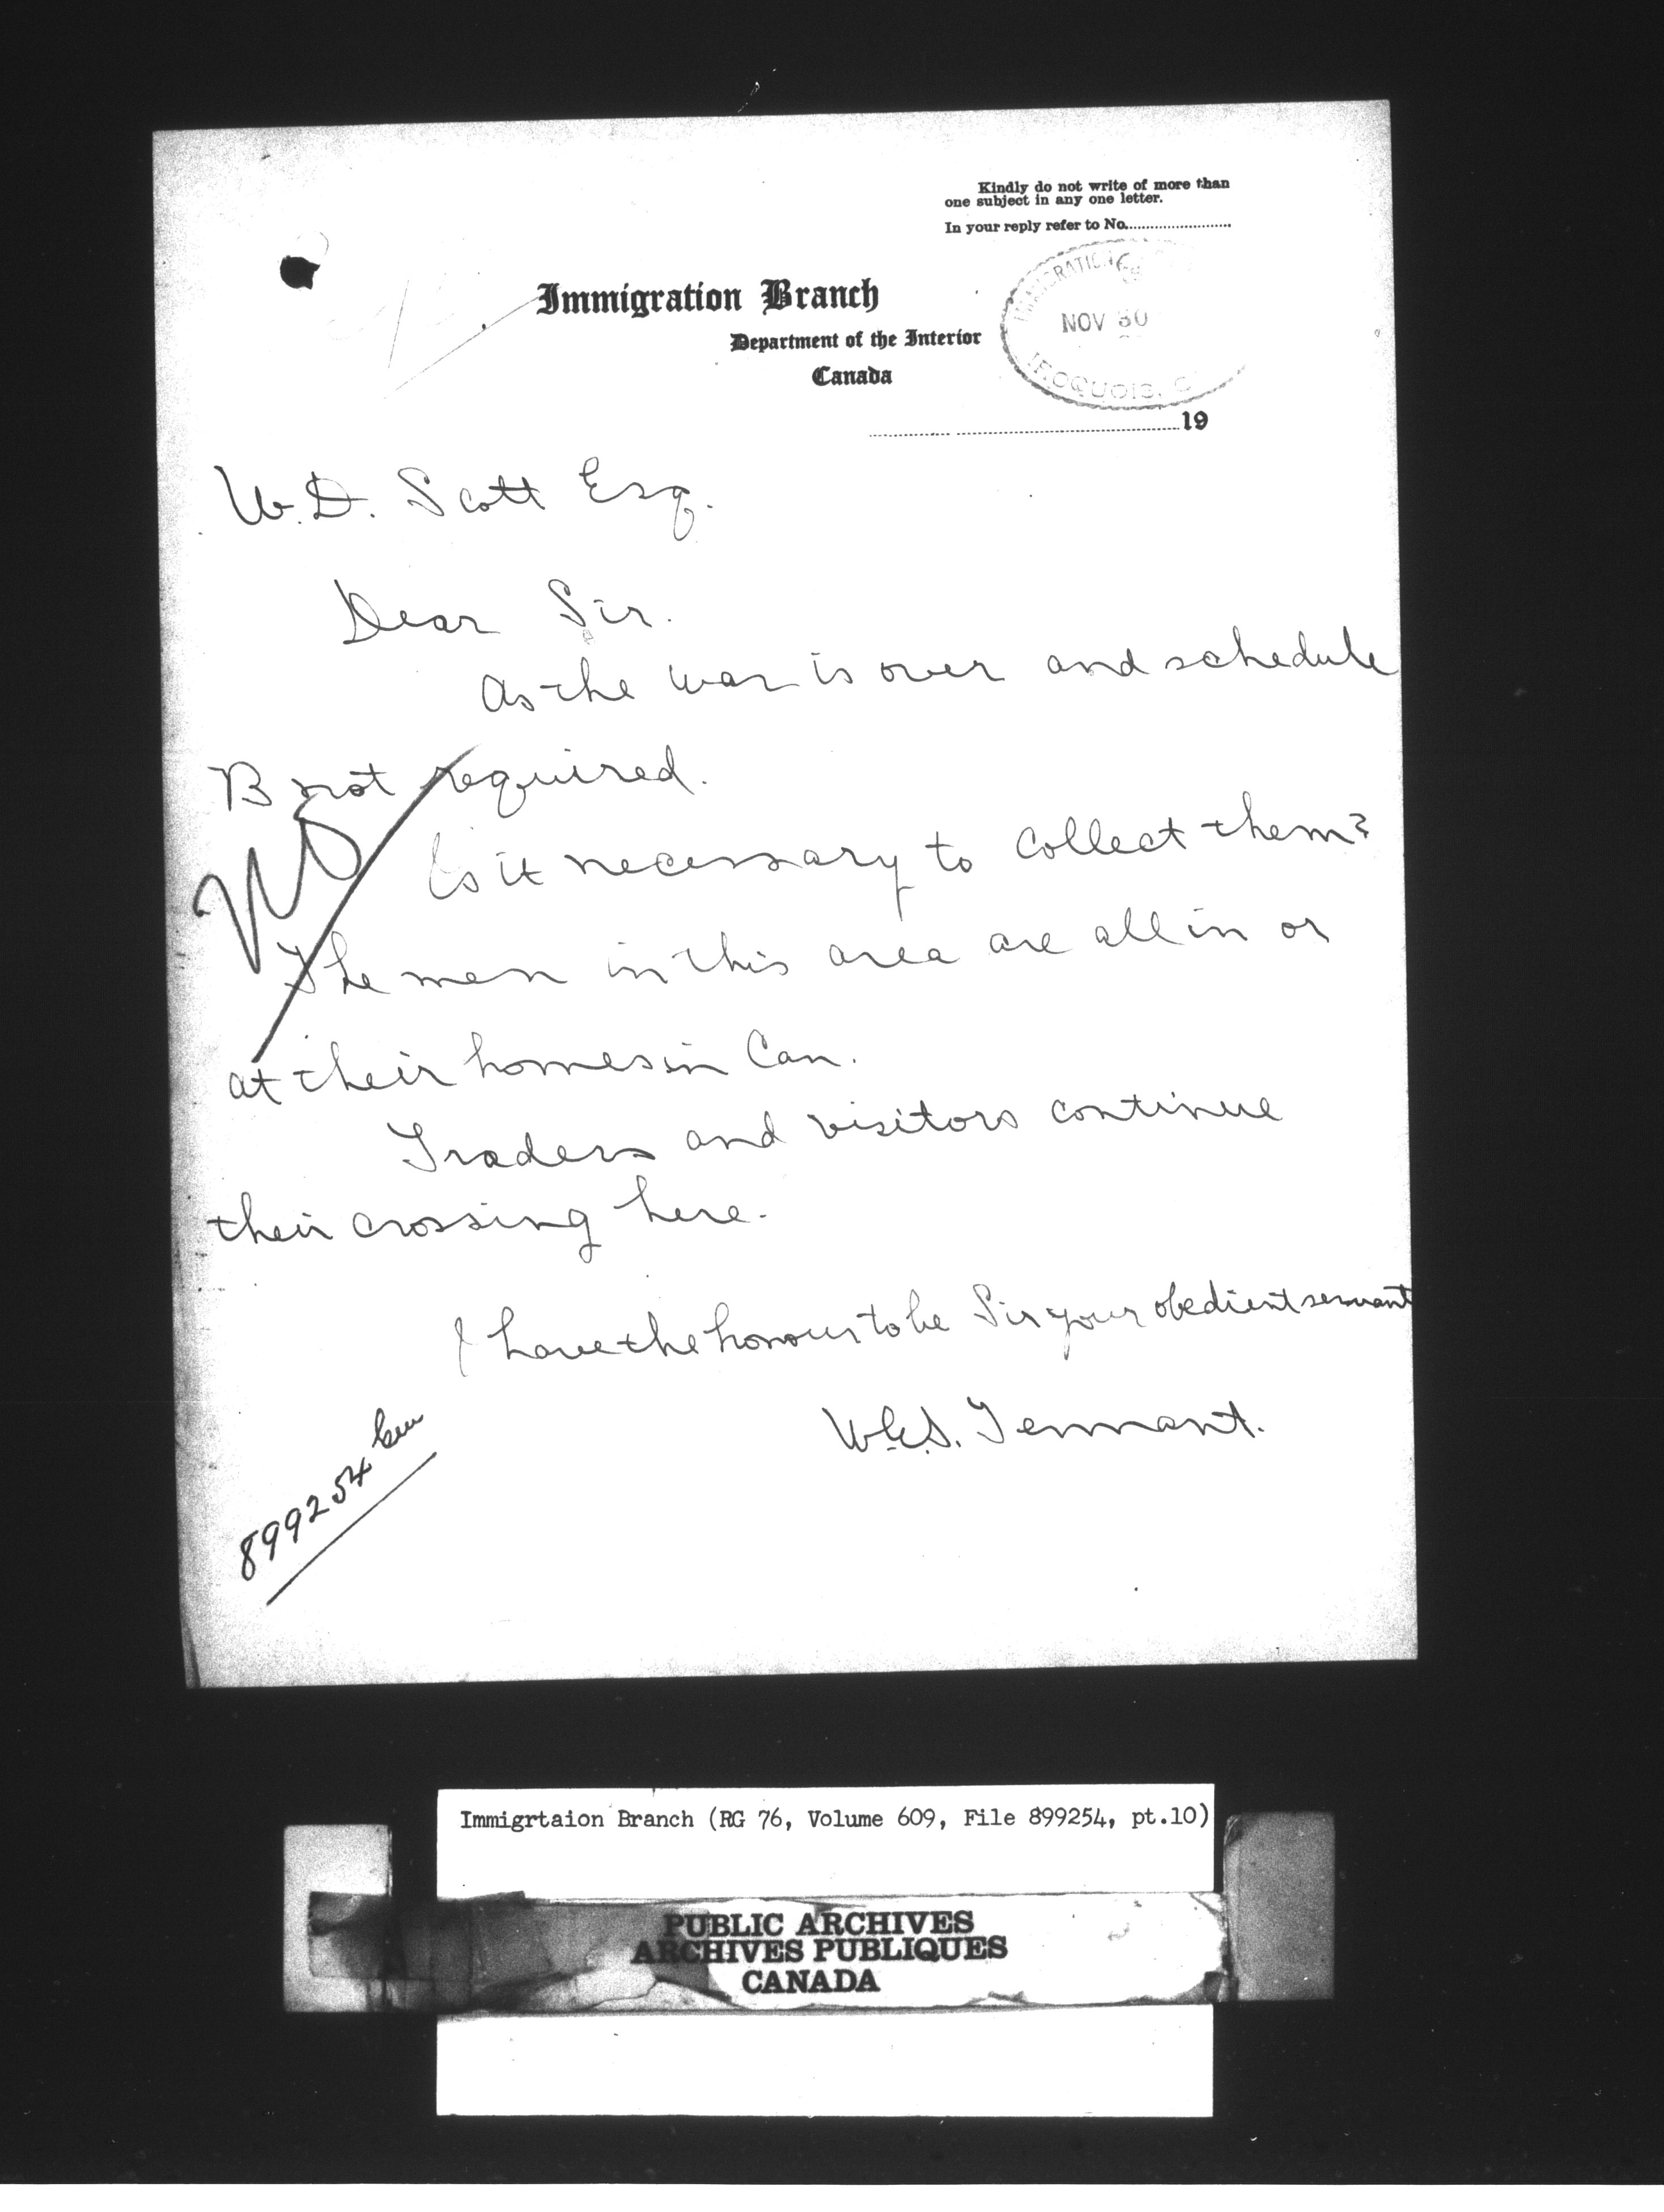 Kindly do not write of more than
one subject in any one letter.
In your reply refer to No.
Immigration Branch
Department of the Interior
Canada
NOV 30
IROQUOIS, O
19
W.D. Scott Esq.
Dear Sir.
As the war is over and schedule
B not required.
Is it necessary to collect them?
NO
The men in this area are all in or
at their homes in Can.
Traders and visitors continue
their crossing here.
I have the honour to be Sir your obedient servant
Tennant.
899254
Immigrtaion Branch (RG 76, Volume 609, File 899254, pt.10)
PUBLIC ARCHIVES
ARCHIVES PUBLIQUES
CANADA